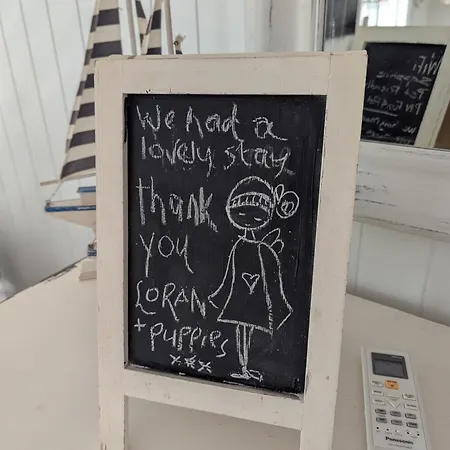 We had a
lovely stay
thank
you
LORAN
+ puppies
x x x
WiFi
Panasonic